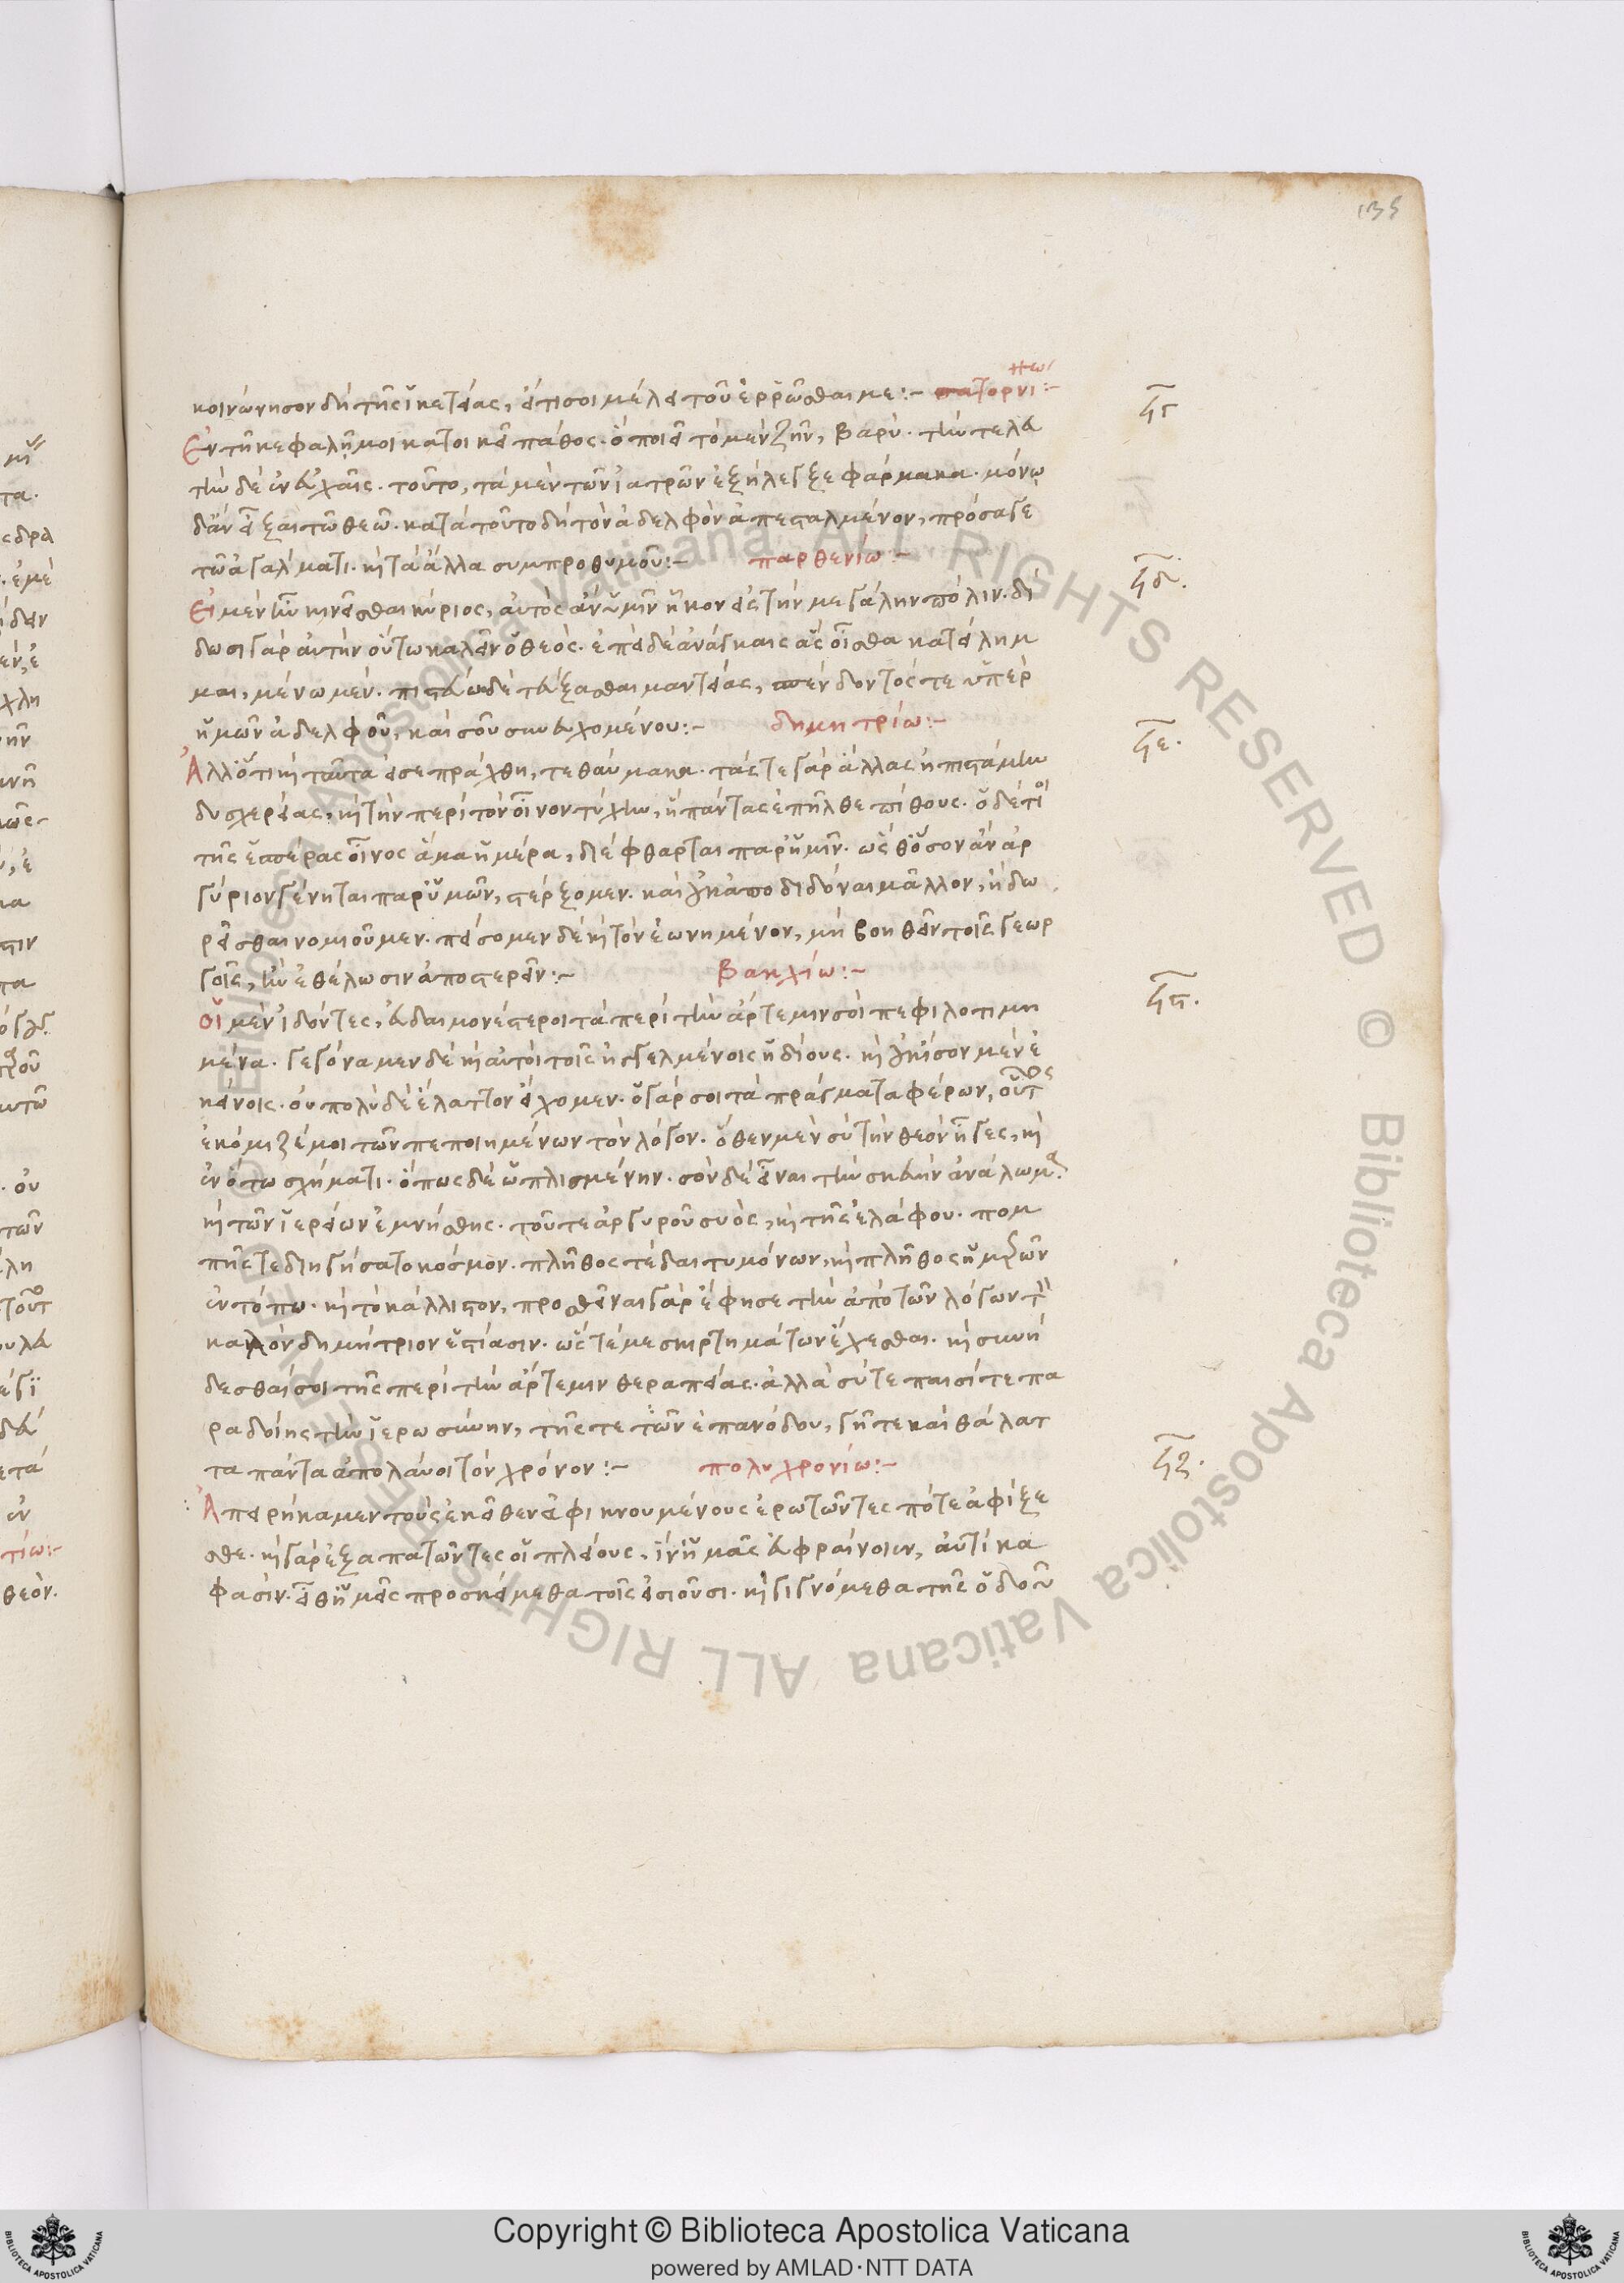 135
κοινώνησον δὴ τῆς ἱκετείας, εἴ τι σοι μέλει τοῦ ἐρρῶσθαι με :- σατορνι
νω :-
ϟγ
Ἐν τῇ κεφαλῇ μοι κατοικεῖ πάθος. ὃ ποιεῖ τὸ μὲν ζῆν, βαρύ. τὴν τελευ
τὴν δὲ ἐν εὐχαῖς. τοῦτο, τὰ μὲν τῶν ἰατρῶν ἐξήλεγξε φάρμακα. μόνῳ
δ' ἂν εἴξαι τῶ θεῶ. κατὰ τοῦτο δὴ τὸν ἀδελφὸν ἀπεσταλμένον, πρόσαγε
τῶ ἀγάλματι. καὶ τὰ ἄλλα συμπροθυμοῦ :- παρθενίω :-
ϟδ.
Εἰ μὲν ἦν κινεῖσθαι κύριος, αὐτὸς ἂν ὑμῖν ἧκον εἰς τὴν μεγάλην πόλιν. δί
δωσι γὰρ αὐτὴν οὕτω καλεῖν ὁ θεός. ἐπεὶ δὲ ἀνάγκαις ἃς οἶσθα κατείλημ
μαι, μένω μέν. πιστεύω δὲ τεύξασθαι μαντείας, σπεύδοντός τε ὑπὲρ
ἡμῶν ἀδελφοῦ, καὶ σοῦ συνευχομένου :- δημητρίω :-
ϟε.
Ἀλλ' ὅτι καὶ ταῦτα εἰσεπράχθη, τεθαύμακα. τάς τε γὰρ ἄλλας ἠπιστάμην
δυσχερείας, καὶ τὴν περὶ τὸν οἶνον τύχην, ἣ πάντας ἐπῆλθε πίθους. ὁ δέ τοι
τῆς ἑσπέρας οἶνος ἅμα ἡμέρα, διέφθαρται παρ' ἡμῖν. ὥσθ' ὅσον ἂν ἀρ
γύριον γένηται παρ' ὑμῶν, στέρξομεν. καὶ οὐκ ἀποδιδόναι μᾶλλον, ἢ δω
ρεῖσθαι νομιοῦμεν. πείσομεν δὲ καὶ τὸν ἐωνημένον, μὴ βοηθεῖν τοῖς γεωρ
γοῖς, ἢν ἐθέλωσιν ἀποστερεῖν :- βακχίω :-
ϟϛ.
Οἱ μὲν ἰδόντες, εὐδαιμονέστεροι τὰ περὶ τὴν ἄρτεμιν σοὶ πεφιλοτιμη
μένα. γεγόναμεν δὲ καὶ αὐτοὶ τοῖς ἠγγελμένοις ἡδίους. καὶ οὐκ ἴσον μὲν ἐ
κείνοις. οὐ πολὺ δὲ ἔλαττον εἴχομεν. ὁ γάρ σοι τὰ πράγματα φέρων, οὗτος
ἐκόμιζέ μοι τῶν πεποιημένων τὸν λόγον. ὅθεν μὲν σὺ τὴν θεὸν ἦγες, καὶ
ἐν ὅτω σχήματι. ὅπως δὲ ὡπλισμένην. σὸν δὲ εἶναι τὴν σκευὴν ἀνάλωμα.
καὶ τῶν ἱερείων ἐμνήσθης. τοῦ τε ἀργυροῦ συὸς, καὶ τῆς ἐλάφου. πομ
πῆς τε διηγήσατο κόσμον. πλῆθος τὲ δαιτυμόνων, καὶ πλῆθος ἡμερῶν
ἐν τόπω. καὶ τὸ κάλλιστον, προσθεῖναι γὰρ ἔφησε τὴν ἀπὸ τῶν λόγων τὸν
καλὸν δημήτριον ἑστίασιν. ὥστέ με σκιρτημάτων ἔχεσθαι. καὶ συνή
δεσθαί σοι τῆς περὶ τὴν ἄρτεμιν θεραπείας. ἀλλὰ σύ τε παισί τε πα
ραδοίης τὴν ἱερωσύνην, τῆς τε τῶν ἐπανόδου, γῆ τε καὶ θάλατ
τα πάντα ἀπολαύοι τὸν χρόνον :- πολυχρονίω :-
ϟζ.
Ἀπειρήκαμεν τοὺς ἐκεῖθεν ἀφικνουμένους ἐρωτῶντες πότε ἀφίξε
σθε. καὶ γὰρ ἐξαπατῶντες οἱ πλείους, ἵν' ἡμᾶς εὐφραίνοιεν, αὐτίκα
φασίν. εἶθ' ἡμεῖς προσκείμεθα τοῖς εἰσιοῦσι. καὶ γιγνόμεθα τῆς ὁδοῦ
τίω :-
θεόν.
Copyright © Biblioteca Apostolica Vaticana
powered by AMLAD·NTT DATA
© Biblioteca Apostolica Vaticana ALL RIGHTS RESERVED